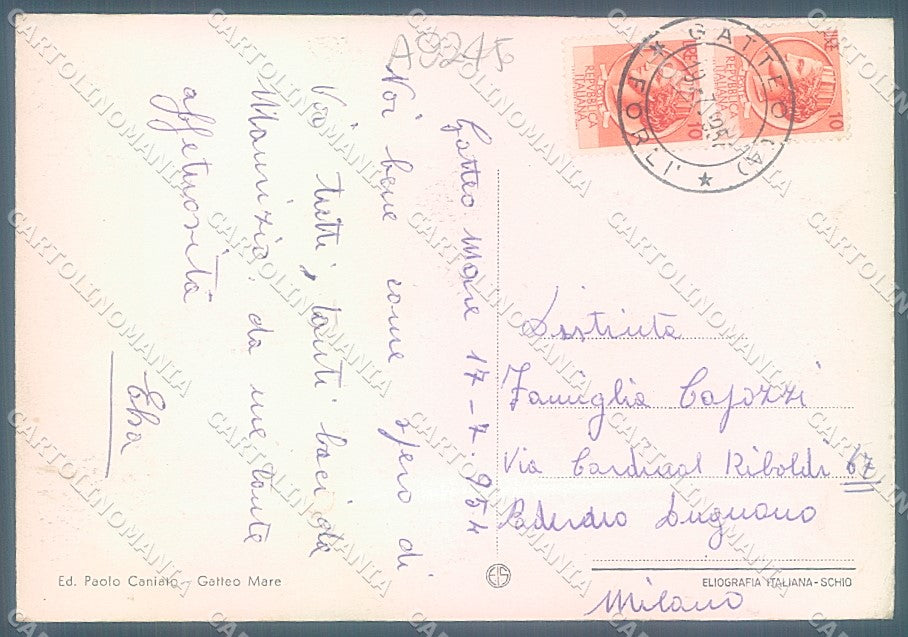 A0245
Gatteo Mare 17-7-954
Noi bene come spero di
Voi tutti, tanti baci da
Maurizio, da me tante
affettuosità
Elsa
REPVBBLICA
ITALIANA
10
REPVBBLICA
ITALIANA
10
GATTEO (A)
FORLI'
Distinta
Famiglia Capozzi
Via Cardinal Riboldi 67
Paderno Dugnano
Milano
Ed. Paolo Caniato - Gatteo Mare
ELIOGRAFIA ITALIANA-SCHIO
CARTOLINOMANIA